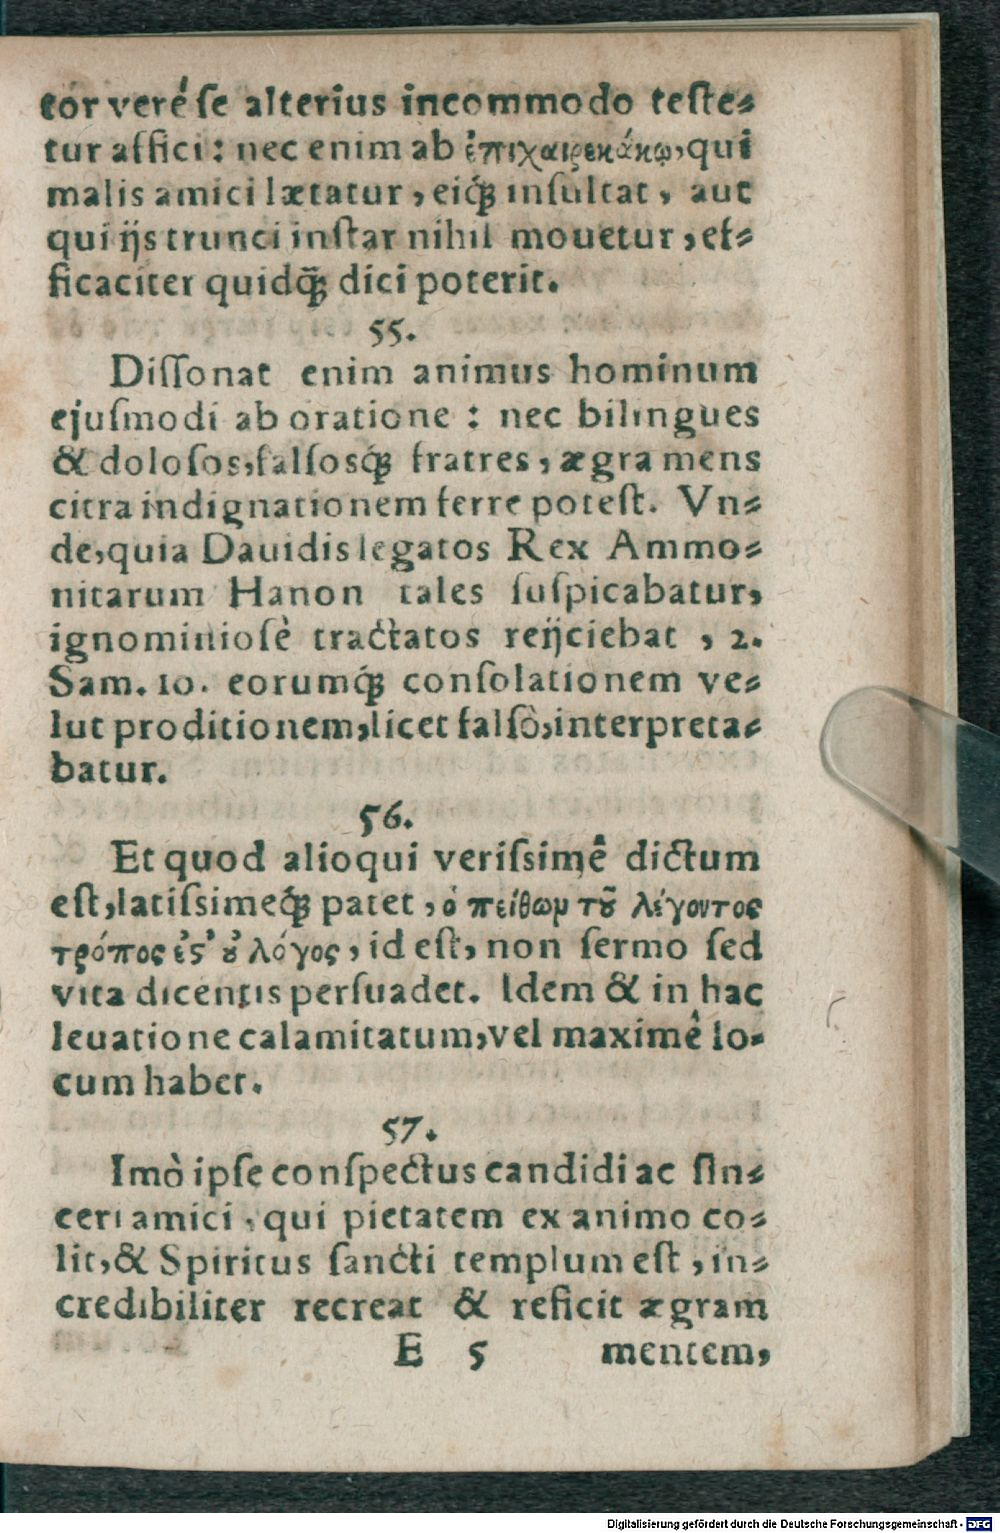 tor verè se alterius incommodo teste-
tur affici: nec enim ab ἐπιχαιρεκάκῳ, qui
malis amici lætatur, eiq́; insultat, aut
qui ijs trunci instar nihil mouetur, ef-
ficaciter quidq̃; dici poterit.
55.
Dissonat enim animus hominum
ejusmodi ab oratione: nec bilingues
& dolosos, falsosq́; fratres, ægra mens
citra indignationem ferre potest. Vn-
de, quia Dauidis legatos Rex Ammo-
nitarum Hanon tales suspicabatur,
ignominiosè tractatos reijciebat, 2.
Sam. 10. eorumq́; consolationem ve-
lut proditionem, licet falsò, interpreta-
batur.
56.
Et quod alioqui verissimè dictum
est, latissimeq́; patet, ὁ πείθωμ τȣ͂ λέγοντος
τρόπος ἐς' ȣ̓ λόγος, id est, non sermo sed
vita dicentis persuadet. Idem & in hac
leuatione calamitatum, vel maximè lo-
cum habet.
57.
Imò ipse conspectus candidi ac sin-
ceri amici, qui pietatem ex animo co-
lit, & Spiritus sancti templum est, in-
credibiliter recreat & reficit ægram
E 5 mentem,
Digitalisierung gefördert durch die Deutsche Forschungsgemeinschaft - DFG